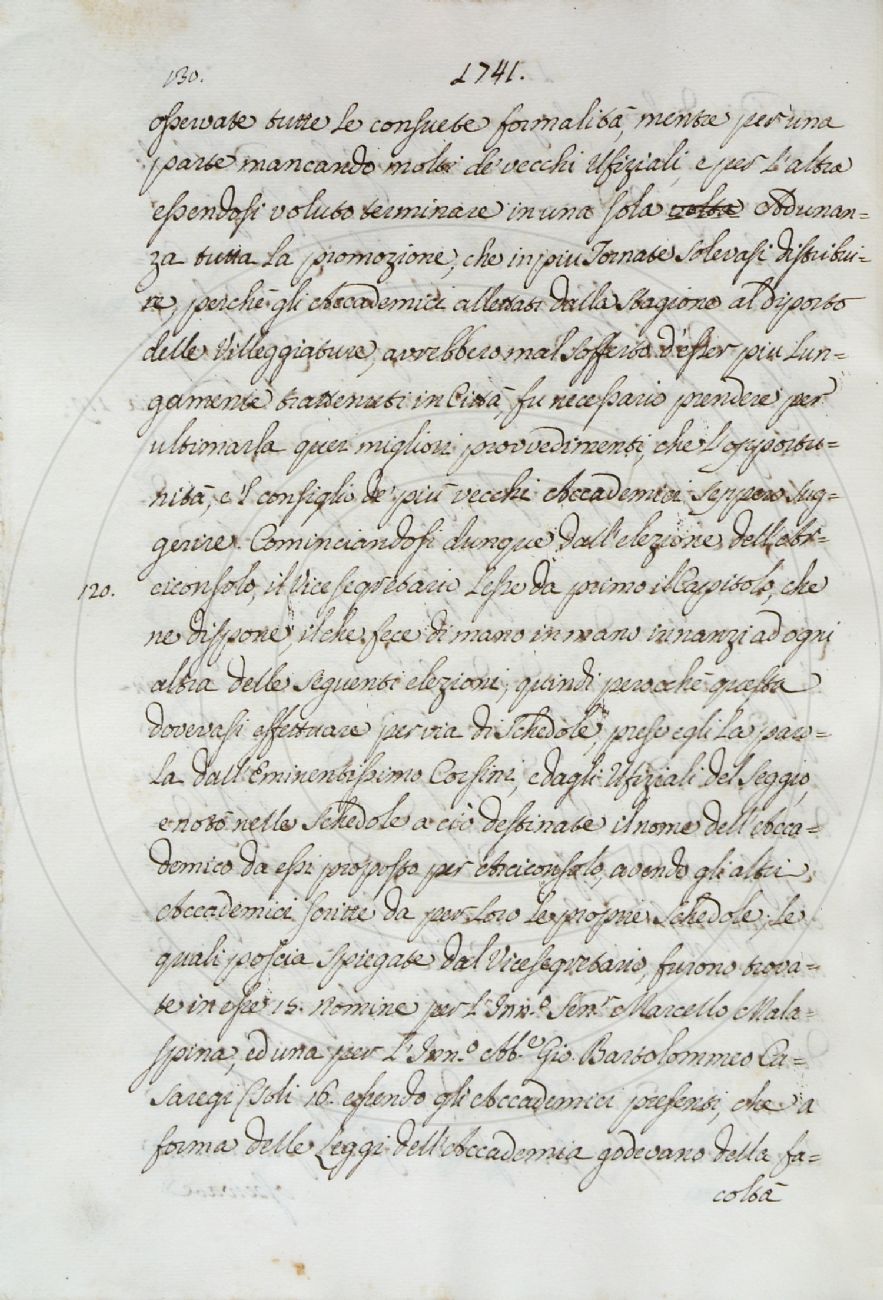 130. 1741.
osservate tutte le consuete formalità, mentre per una
parte mancando molti de' vecchi Ufiziali, e per l'altra
essendosi voluto terminare in una sola volta Adunan=
za tutta la promozione, che in più Tornate solevasi distribui=
re, perchè gli Accademici allettati dalla stagione al diporto
delle Villeggiature, avrebbero mal sofferto d'esser più lun=
gamente trattenuti in Città, fu necessario prendere per
ultimarla quei migliori provvedimenti, che l'opportu=
nità, e 'l consiglio de' più vecchi Accademici seppero sug=
gerire. Cominciandosi dunque dall'elezione dell'Ar=
120. ciconsolo, il Vicesegretario lesse da primo il Capitolo, che
ne dispone, il che fece di mano in mano innanzi ad ogni
altra delle seguenti elezioni; quindi perocchè questa
dovevasi effettuare per via di Schedole, prese egli la paro=
la dall'Eminentissimo Corsini, e dagli Ufiziali del Seggio,
e notò nelle Schedole a ciò destinate il nome dell'Acca=
demico da essi proposto per Arciconsolo, avendo gli altri
Accademici scritte da per loro le proprie Schedole; le
quali poscia spiegate dal Vicesegretario, furono trova=
te in esse 15. Nomine per l'Inn.º Sen.r Marcello Mala=
spina, ed una per l'Inn.º Ab.e Gio. Bartolommeo Ca=
saregi soli 16. essendo gli Accademici presenti, che a
forma delle Leggi dell'Accademia godevano della fa=
coltà